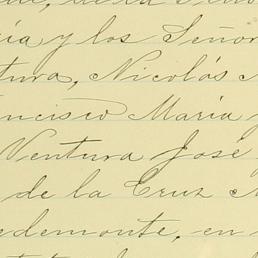 de la
ía y los Señor
tura, Nicolás
ncisco María y
Ventura José
de la Cruz
edemonte, en